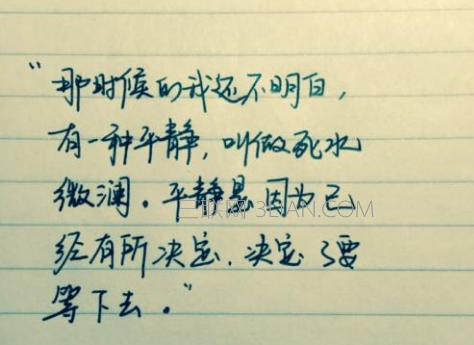 “那时候的我还不明白，
有一种平静，叫做死水
微澜。平静是因为已
经有所决定，决定了要
等下去。”
三联网 3LIAN.COM